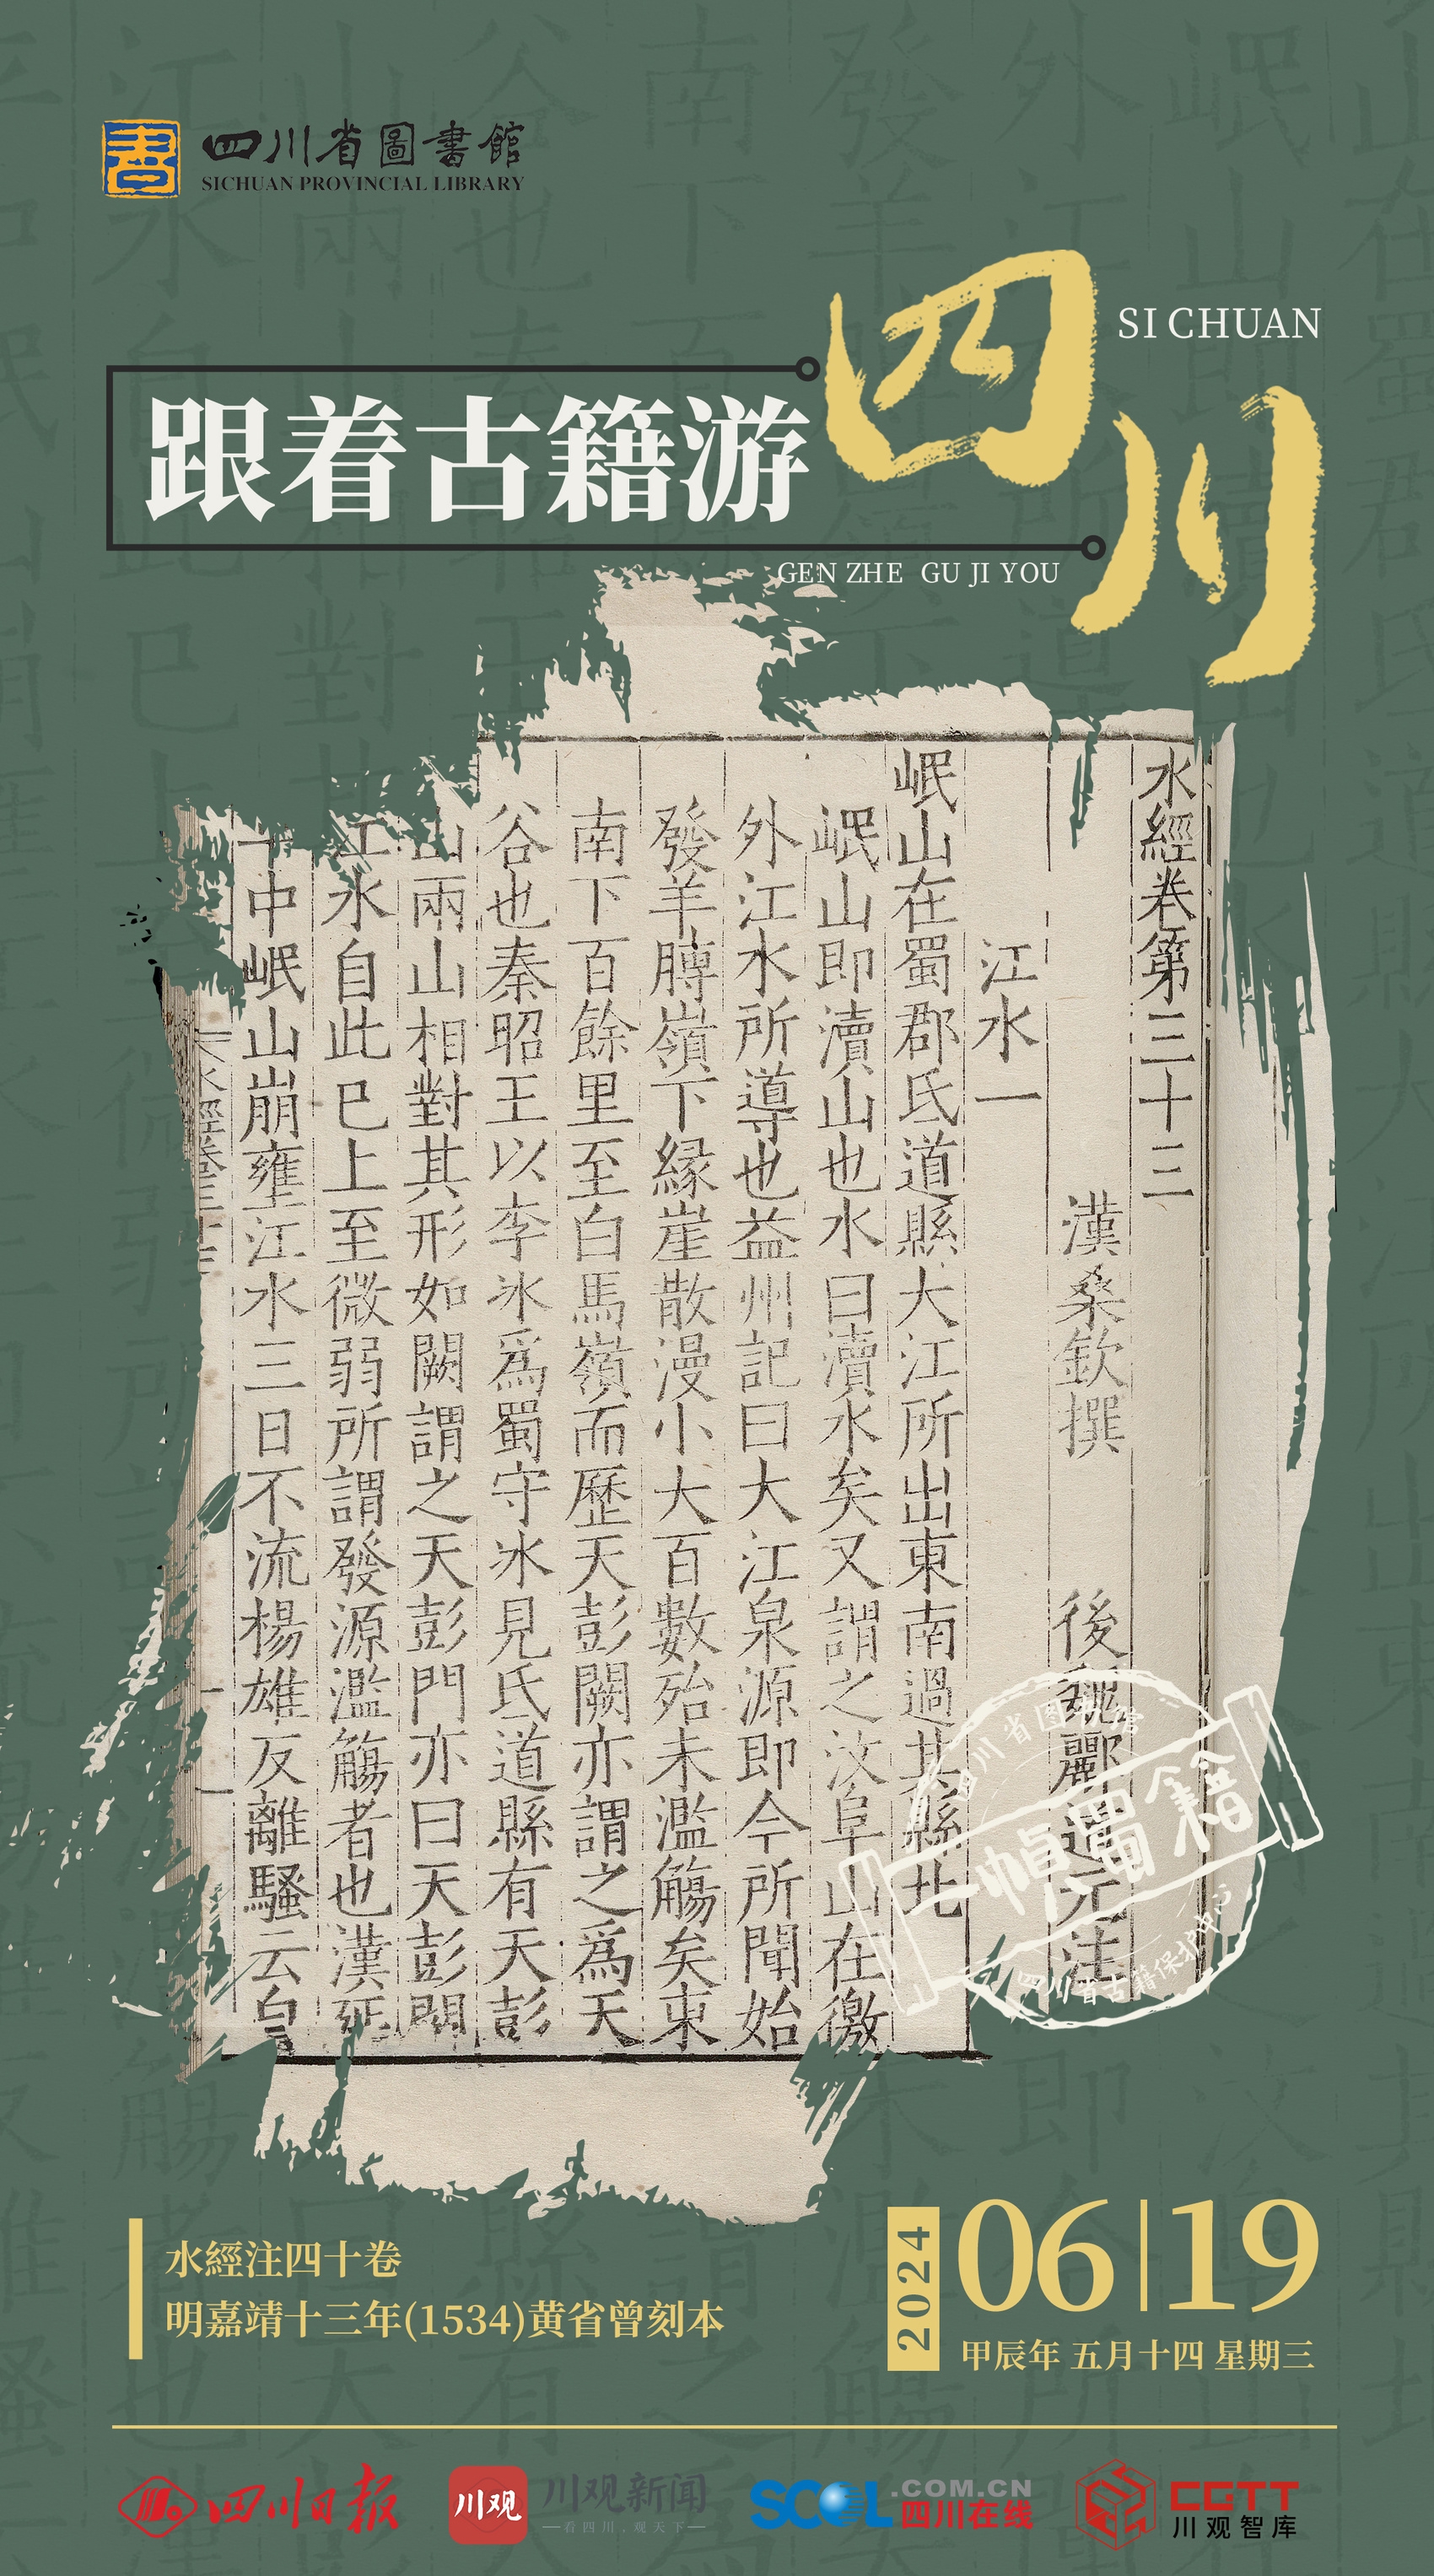 四川省圖書館
SICHUAN PROVINCIAL LIBRARY
四川
SI CHUAN
跟着古籍游
GEN ZHE GU JI YOU
水經卷第三十三
漢桑欽撰 後魏酈道元注
江水一
岷山在蜀郡氐道縣大江所出東南過其縣北
岷山即瀆山也水曰瀆水矣又謂之汶阜山在徼
外江水所導也益州記曰大江泉源即今所聞始
發羊膊嶺下緣崖散漫小大百數殆未濫觴矣東
南下百餘里至白馬嶺而歷天彭闕亦謂之爲天
谷也秦昭王以李氷爲蜀守氷見氐道縣有天彭
山兩山相對其形如闕謂之天彭門亦曰天彭闕
江水自此已上至微弱所謂發源濫觴者也漢延
中岷山崩壅江水三日不流楊雄反離騷云自
水經卷三十三
四川省图书馆
一幀蜀籍
四川省古籍保护中心
水經注四十卷
明嘉靖十三年(1534)黄省曾刻本
2024
06|19
甲辰年 五月十四 星期三
四川日报
川观
川观新闻
看四川,观天下
SCOL.COM.CN
四川在线
CGTT
川观智库